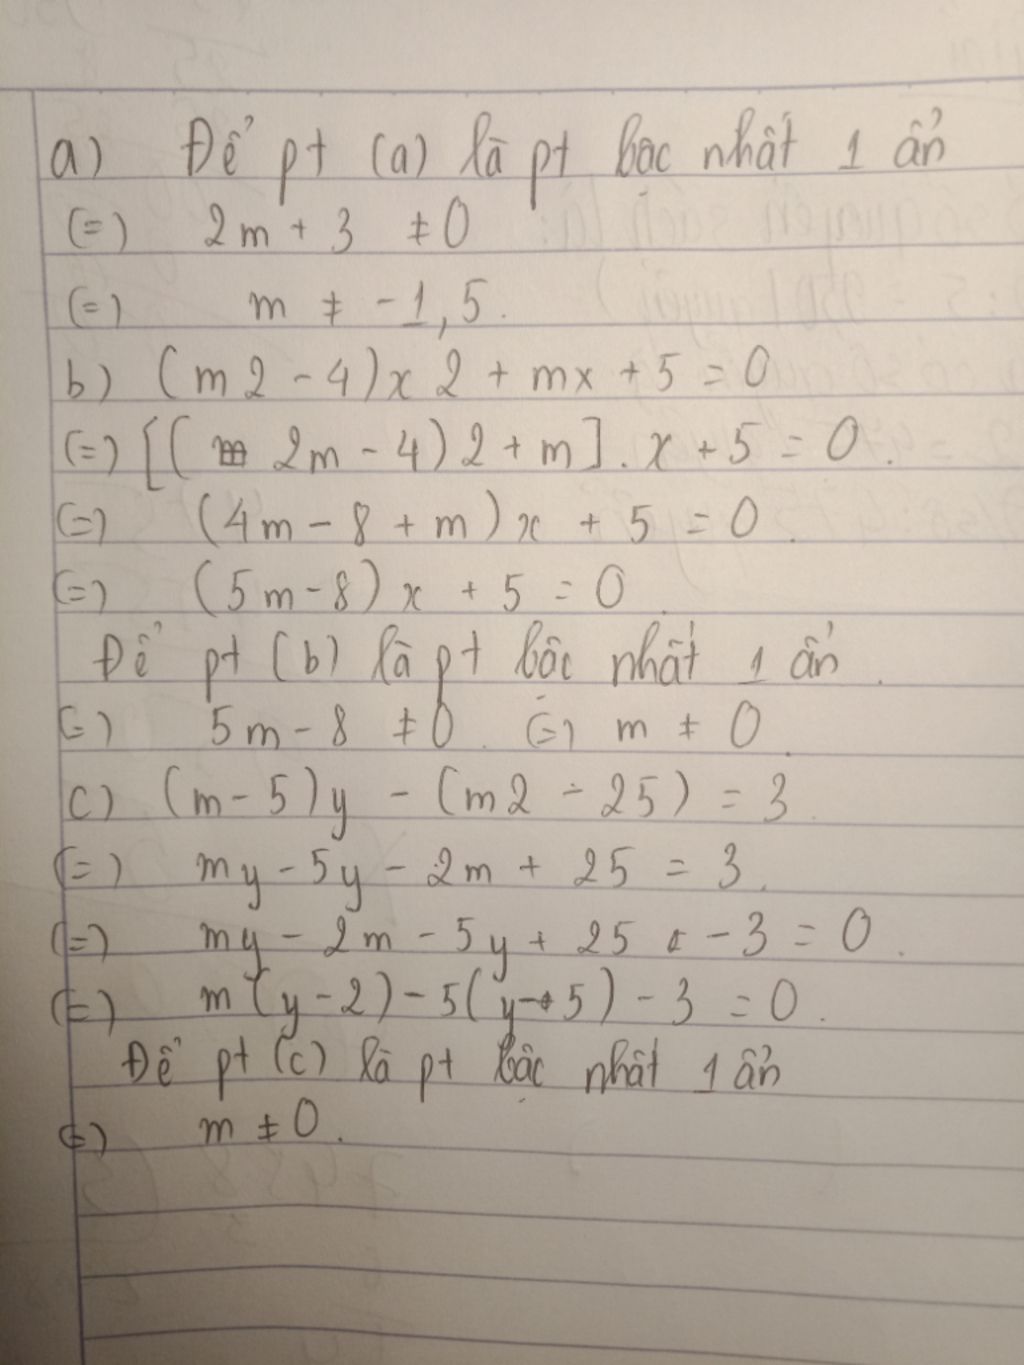 a) Để pt (a) là pt bậc nhất 1 ẩn
(=) 2m + 3 ≠ 0
(=) m ≠ -1,5.
b) (m2 - 4)x2 + mx + 5 = 0
(=) [(2m - 4)2 + m].x + 5 = 0.
(=) (4m - 8 + m)x + 5 = 0.
(=) (5m - 8)x + 5 = 0.
Để pt (b) là pt bậc nhất 1 ẩn.
(=) 5m - 8 ≠ 0. (=) m ≠ 0.
c) (m - 5)y - (m2 - 25) = 3.
(=) my - 5y - 2m + 25 = 3.
(=) my - 2m - 5y + 25 - 3 = 0.
(=) m(y - 2) - 5(y + 5) - 3 = 0.
Để pt (c) là pt bậc nhất 1 ẩn
(=) m ≠ 0.